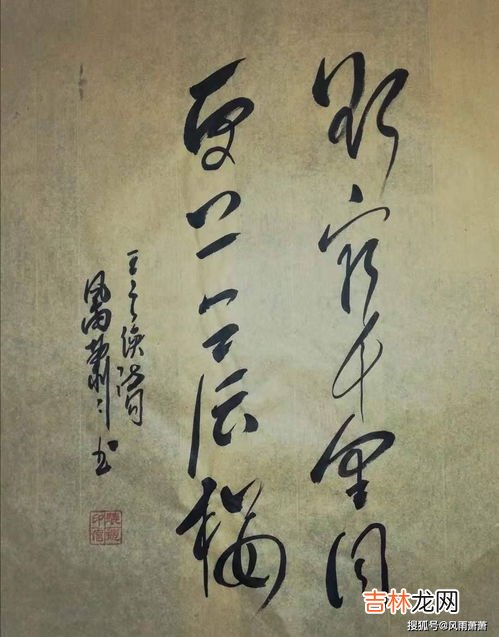 欲穷千里目
更上一层楼
王之涣
风雨萧〻书
吉林龙网
搜狐号@风雨萧萧